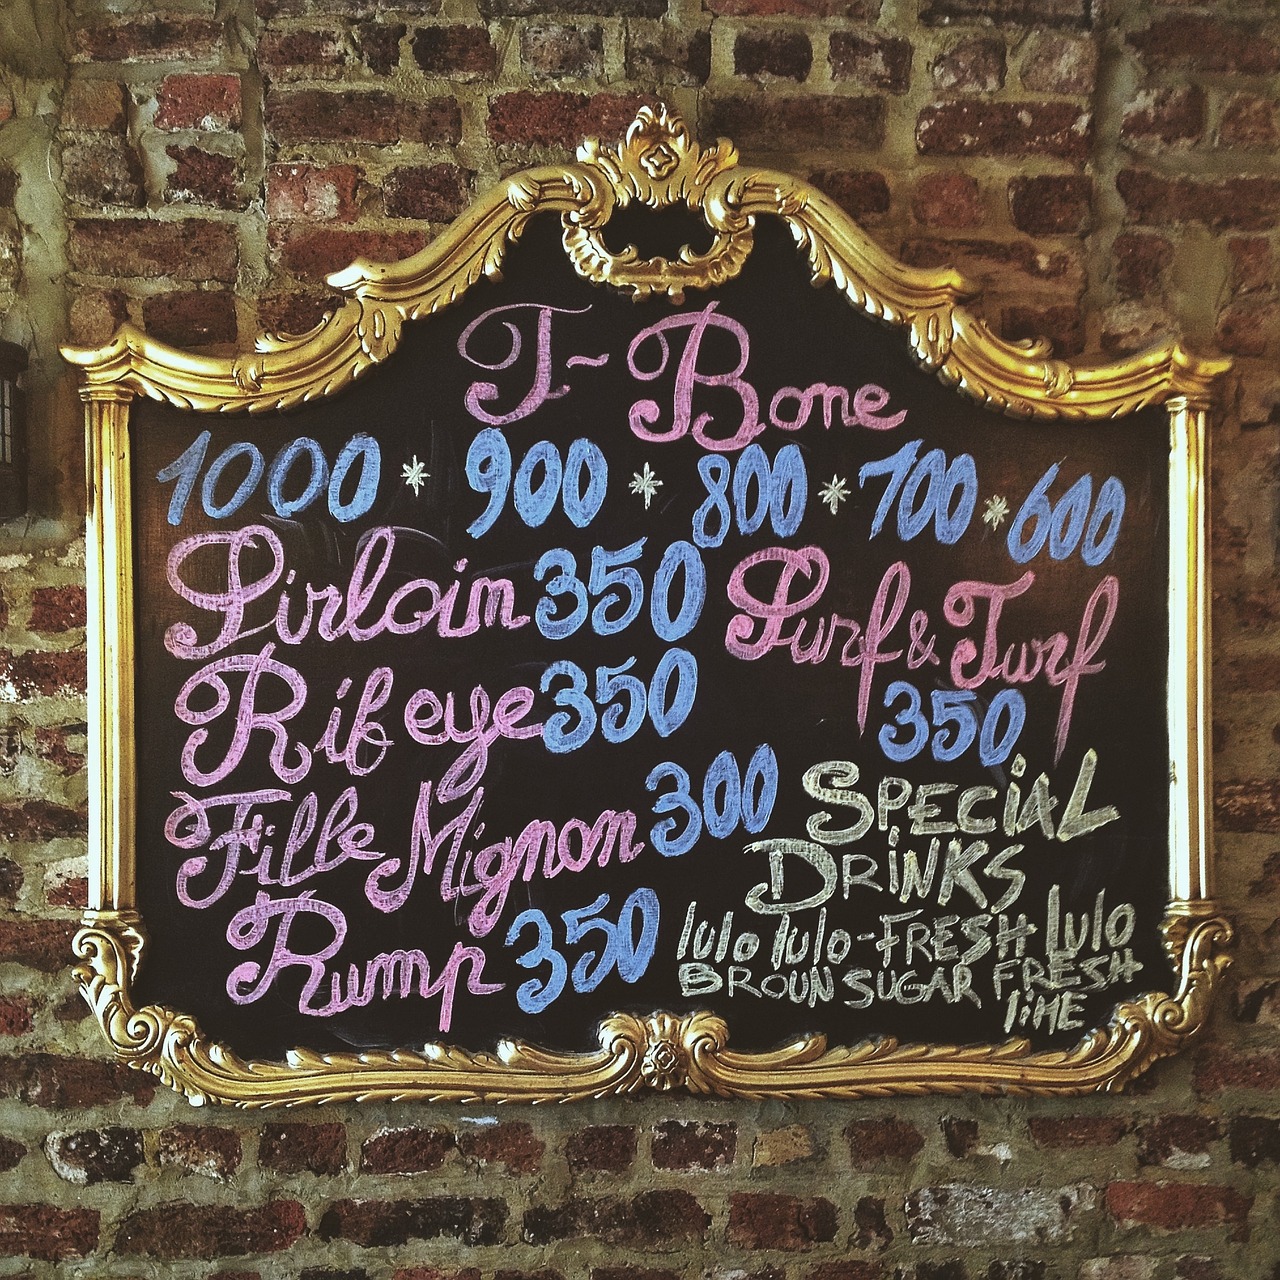 T-Bone
1000 * 900 * 800 * 700 * 600
Sirloin 350
Surf & Turf
350
Rib eye 350
Fille Mignon 300
Rump 350
SPECiAL
DRiNKS
lulo lulo-FRESH lulo
BROUN SUGAR FRESH
liME